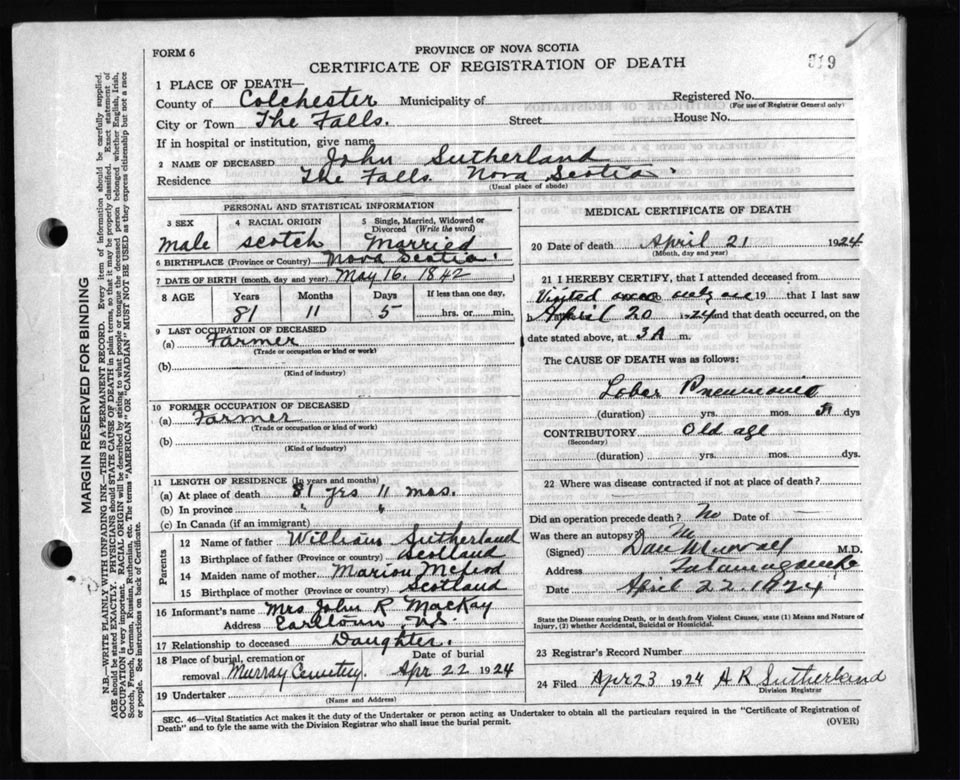 FORM 6
PROVINCE OF NOVA SCOTIA
CERTIFICATE OF REGISTRATION OF DEATH
319
1 PLACE OF DEATH—
County of Colchester Municipality of
Registered No.
(For use of Registrar General only)
City or Town The Falls. Street House No.
If in hospital or institution, give name
2 NAME OF DECEASED John Sutherland
Residence The Falls Nova Scotia
(Usual place of abode)
PERSONAL AND STATISTICAL INFORMATION
3 SEX 4 RACIAL ORIGIN 5 Single, Married, Widowed or Divorced (Write the word)
male scotch Married
6 BIRTHPLACE (Province or Country) Nova Scotia
7 DATE OF BIRTH (month, day and year) May 16. 1842
8 AGE Years Months Days If less than one day,
81 11 5 hrs. or min.
9 LAST OCCUPATION OF DECEASED
(a) Farmer
(Trade or occupation or kind of work)
(b)
(Kind of industry)
10 FORMER OCCUPATION OF DECEASED
(a) Farmer
(Trade or occupation or kind of work)
(b)
(Kind of industry)
11 LENGTH OF RESIDENCE (In years and months)
(a) At place of death 81 yrs 11 mos.
(b) In province " "
(c) In Canada (if an immigrant)
Parents
12 Name of father William Sutherland
13 Birthplace of father (Province or country) Scotland
14 Maiden name of mother Marion McLeod
15 Birthplace of mother (Province or country) Scotland
16 Informant's name Mrs John R MacKay
Address Earltown N.S.
17 Relationship to deceased Daughter.
18 Place of burial, cremation or Date of burial
removal Murray Cemetery. Apr 22 1924
19 Undertaker
(Name and Address)
MEDICAL CERTIFICATE OF DEATH
20 Date of death April 21 1924
(Month, day and year)
21 I HEREBY CERTIFY, that I attended deceased from
Visited only on 19 that I last saw
April 20 1924 and that death occurred, on the
date stated above, at 3 A m.
The CAUSE OF DEATH was as follows:
Lober Pneumonia
(duration) yrs. mos. dys
CONTRIBUTORY Old age
(Secondary)
(duration) yrs. mos. dys.
22 Where was disease contracted if not at place of death?
Did an operation precede death? No Date of
Was there an autopsy?
(Signed) Dan Murray M.D.
Address Tatamagouche
Date April 22 1924
State the Disease causing Death, or in death from Violent Causes, state (1) Means and Nature of
Injury, (2) whether Accidental, Suicidal or Homicidal.
23 Registrar's Record Number
24 Filed Apr 23 1924 A R Sutherland
Division Registrar
SEC. 46—Vital Statistics Act makes it the duty of the Undertaker or person acting as Undertaker to obtain all the particulars required in the "Certificate of Registration of
Death" and to fyle the same with the Division Registrar who shall issue the burial permit.
(OVER)
MARGIN RESERVED FOR BINDING
N.B—WRITE PLAINLY WITH UNFADING INK—THIS IS A PERMANENT RECORD. Every item of information should be carefully supplied.
AGE should be stated EXACTLY. PHYSICIANS should STATE CAUSE OF DEATH in plain terms, so that it may be properly classified. Exact statement of
OCCUPATION is very important. RACIAL ORIGIN will be described by stating to what people or tongue the deceased person belonged whether English, Irish,
Scotch, French, German, Russian, Ruthenian, etc. The terms "AMERICAN" OR "CANADIAN" MUST NOT BE USED as they express citizenship but not a race
or people. See instructions on back of Certificate.